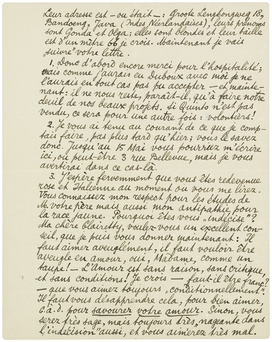 Leur adresse est – ou était – : Groote Lengkongweg 18,
Bandoeng, Java (Indes Néerlandaises), leurs prénoms
sont Gonda et Olga; elles sont blondes et leur taille
est d'un mètre 66 je crois. Maintenant je vais
suivre votre lettre.
1. Donc d'abord encore merci pour l'hospitalité;
mais comme j'aurais eu Duboux avec moi je ne
l'aurais en tout cas pas pu accepter – et mainte-
nant: il ne nous reste, paraît-il, qu'à faire notre
deuil de nos beaux projets. Si Quinto n'est pas
vendu, ce sera pour une autre fois: volontiers!
2. Je vous ai tenue au courant de ce que je comp-
tais faire, pas plus tard qu'hier; vous le savez
donc. Jusqu'au 15 Mai vous pourrez m'écrire
ici, ou peut-être 3 rue Bellevue, mais je vous
avertirai dans ce cas-là.
3. J'espère fervemment que vous êtes redevenue
rose et Italienne au moment où vous me lirez.
Vous connaissez mon respect pour les études de
M. votre Père mais aussi mon antipathie pour
la race jaune. Pourquoi êtes vous "indécise"?
Ma chère Clairette, voulez-vous un excellent con-
seil, que je puis vous donner maintenant: Il
faut aimer aveuglement, et faut vouloir être
aveugle en amour, oui, Madame, comme un
taupe! – l'amour est sans raison, sans critique,
et sans conditions! Je crois – faut-il être franc?
– que vous aimez toujours "conditionnellement".
Il faut vous désapprendre cela, pour bien aimer,
c.à.d. pour savourer votre amour. Sinon, vous
serez très sage, mais toujours très nageante dans
l'indécision, et vous aimerez très mal.